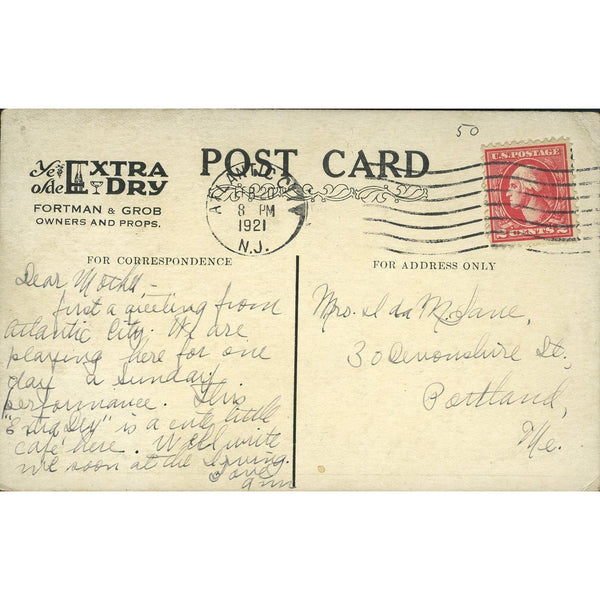 50
Ye olde EXTRA DRY
FORTMAN & GROB
OWNERS AND PROPS.
POST CARD
ATLANTIC CITY
20
8 PM
1921
N.J.
U.S. POSTAGE
2 CENTS 2
FOR CORRESPONDENCE
FOR ADDRESS ONLY
Dear Mother -
first a greeting from
Atlantic City. We are
playing here for one
day a Sunday
performance. This
"Extra Dry" is a cute little
cafe here. Well write
me soon at the Irving.
Love
Ann
Mrs. Ida McLane,
30 Devonshire St,
Portland,
Me.